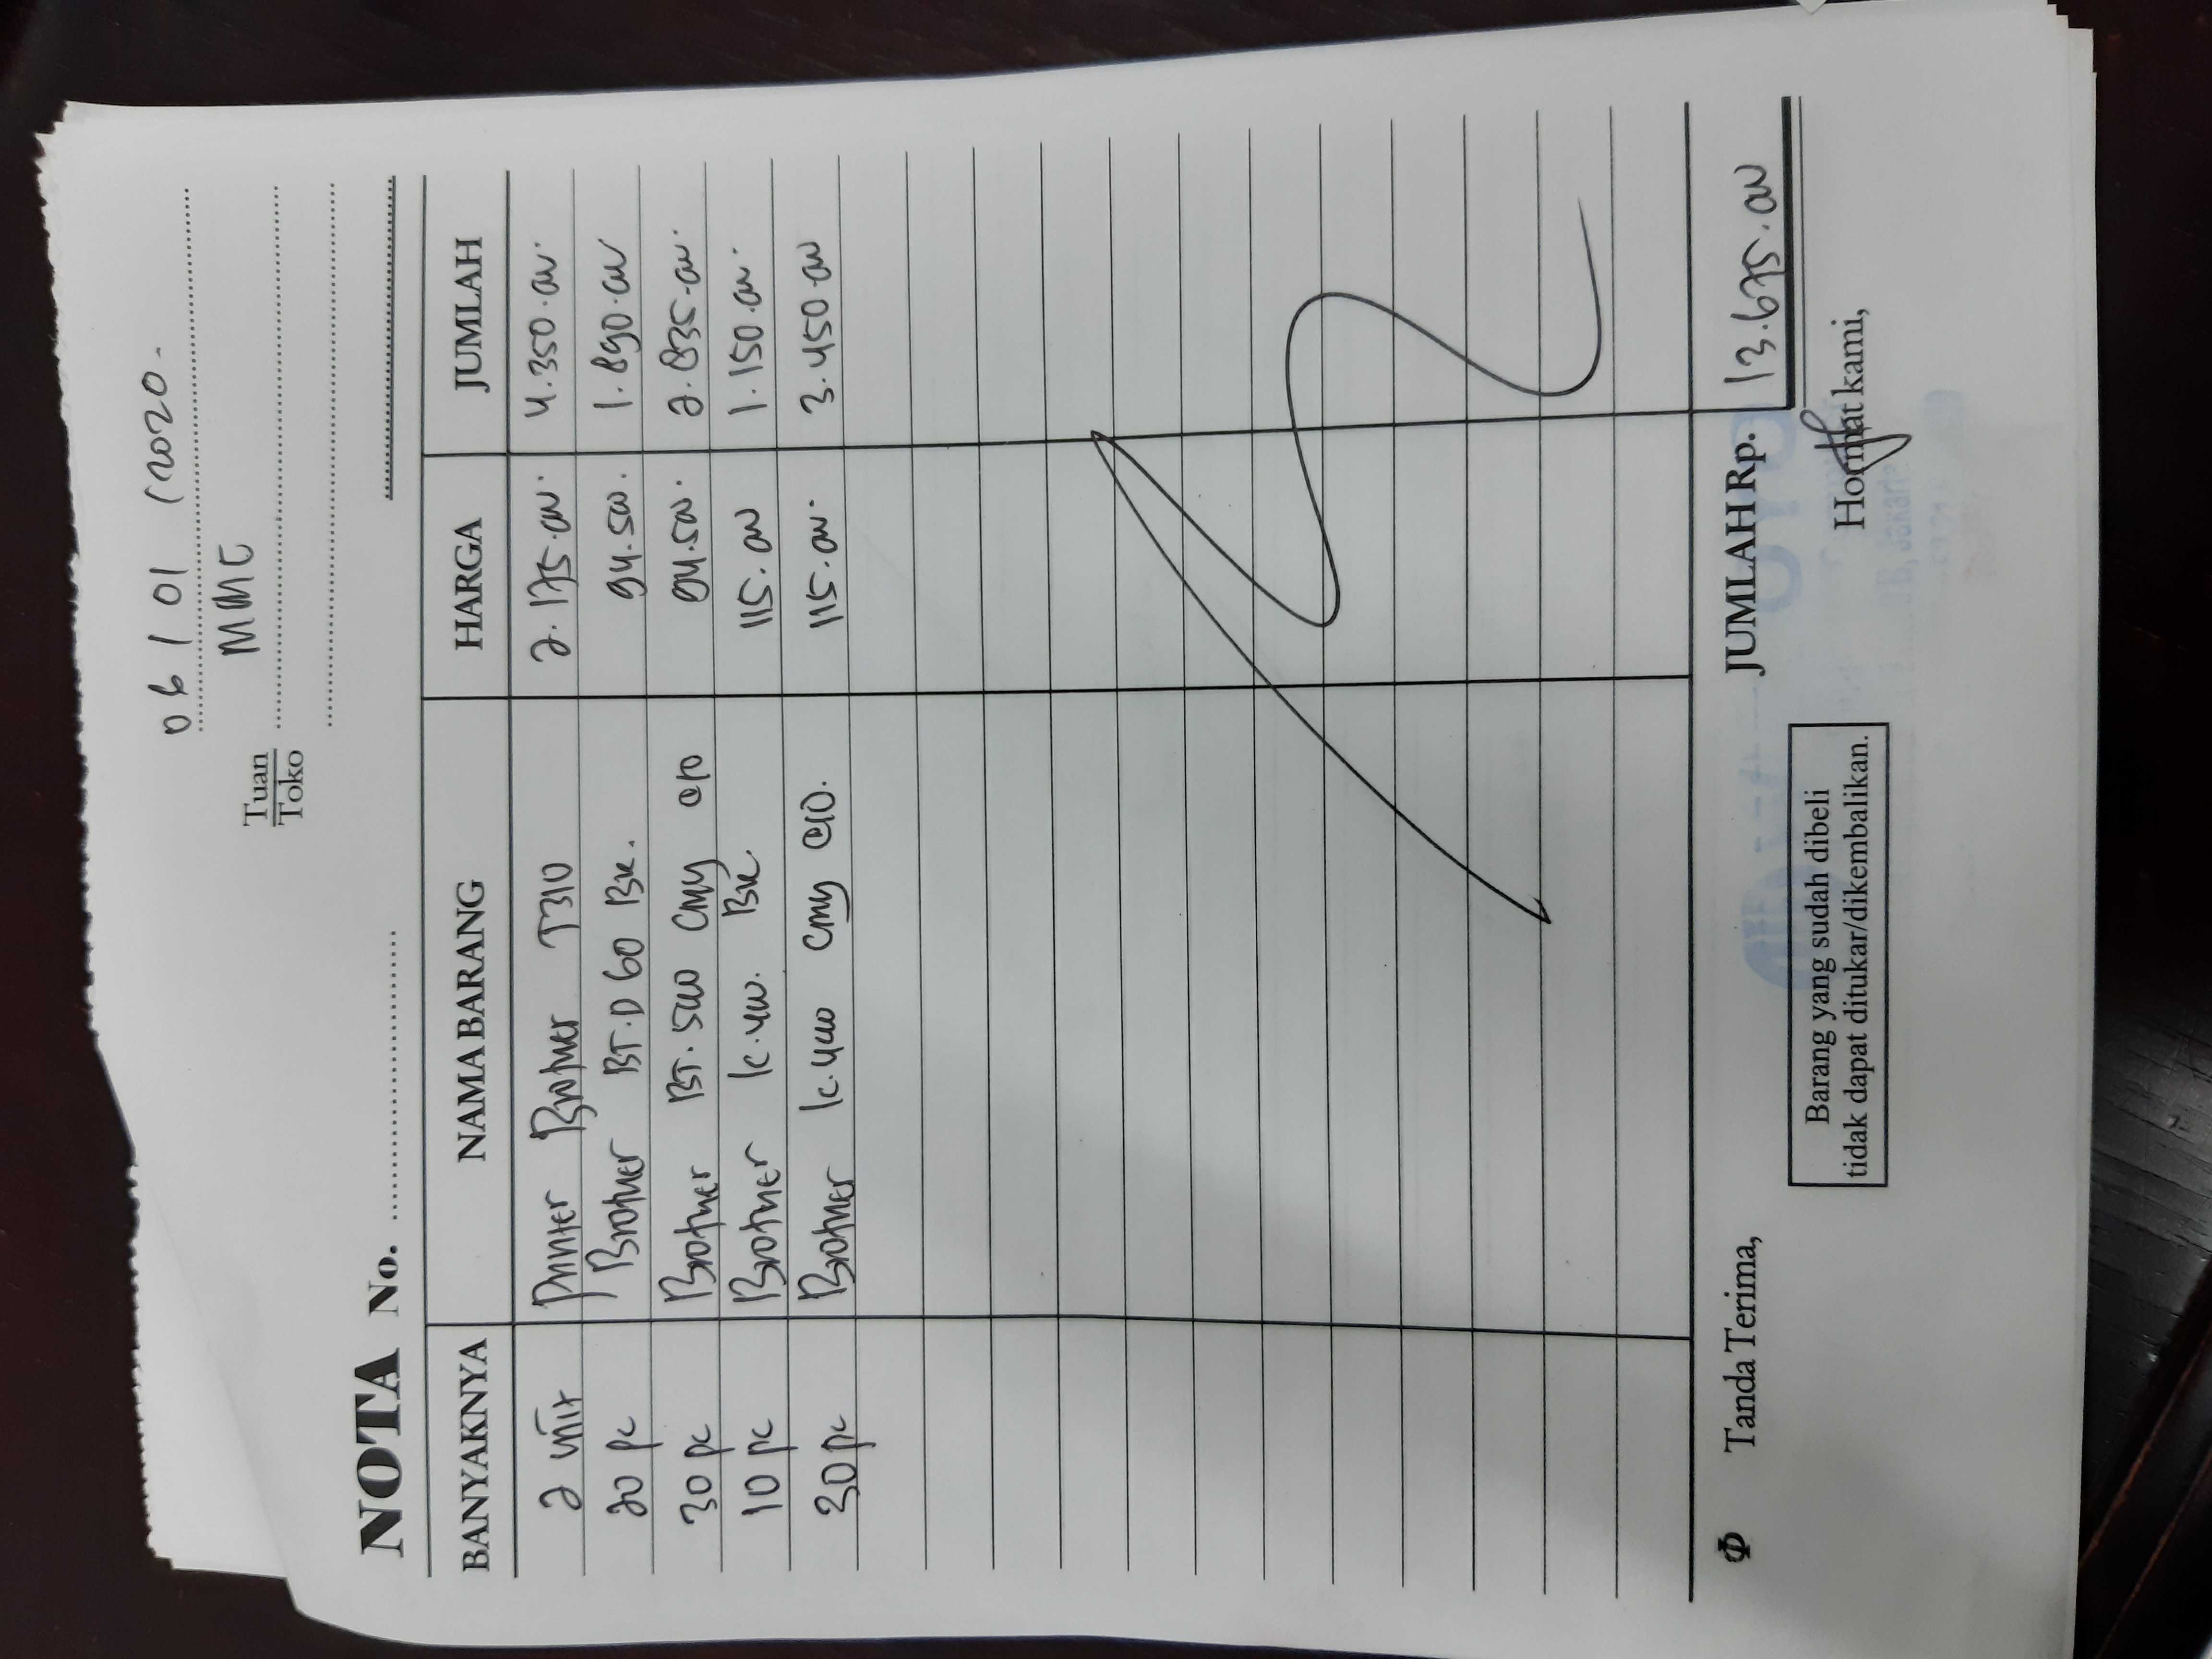 06 / 01 / 2020.
Tuan
Toko
MMC
NOTA No.
BANYAKNYA NAMA BARANG HARGA JUMLAH
2 unit Printer Brother T310 2.175.000. 4.350.000.
20 pc Brother BT.D 60 BK. 94.500. 1.890.000
30 pc Brother BT.5000 CMY @10 94.500. 2.835.000.
10 pc Brother lc.400. BK 115.000 1.150.000.
30 pc Brother lc.400 CMY @10. 115.000. 3.450.000
JUMLAH Rp. 13.675.000
Tanda Terima,
Barang yang sudah dibeli
tidak dapat ditukar/dikembalikan.
Hormat kami,